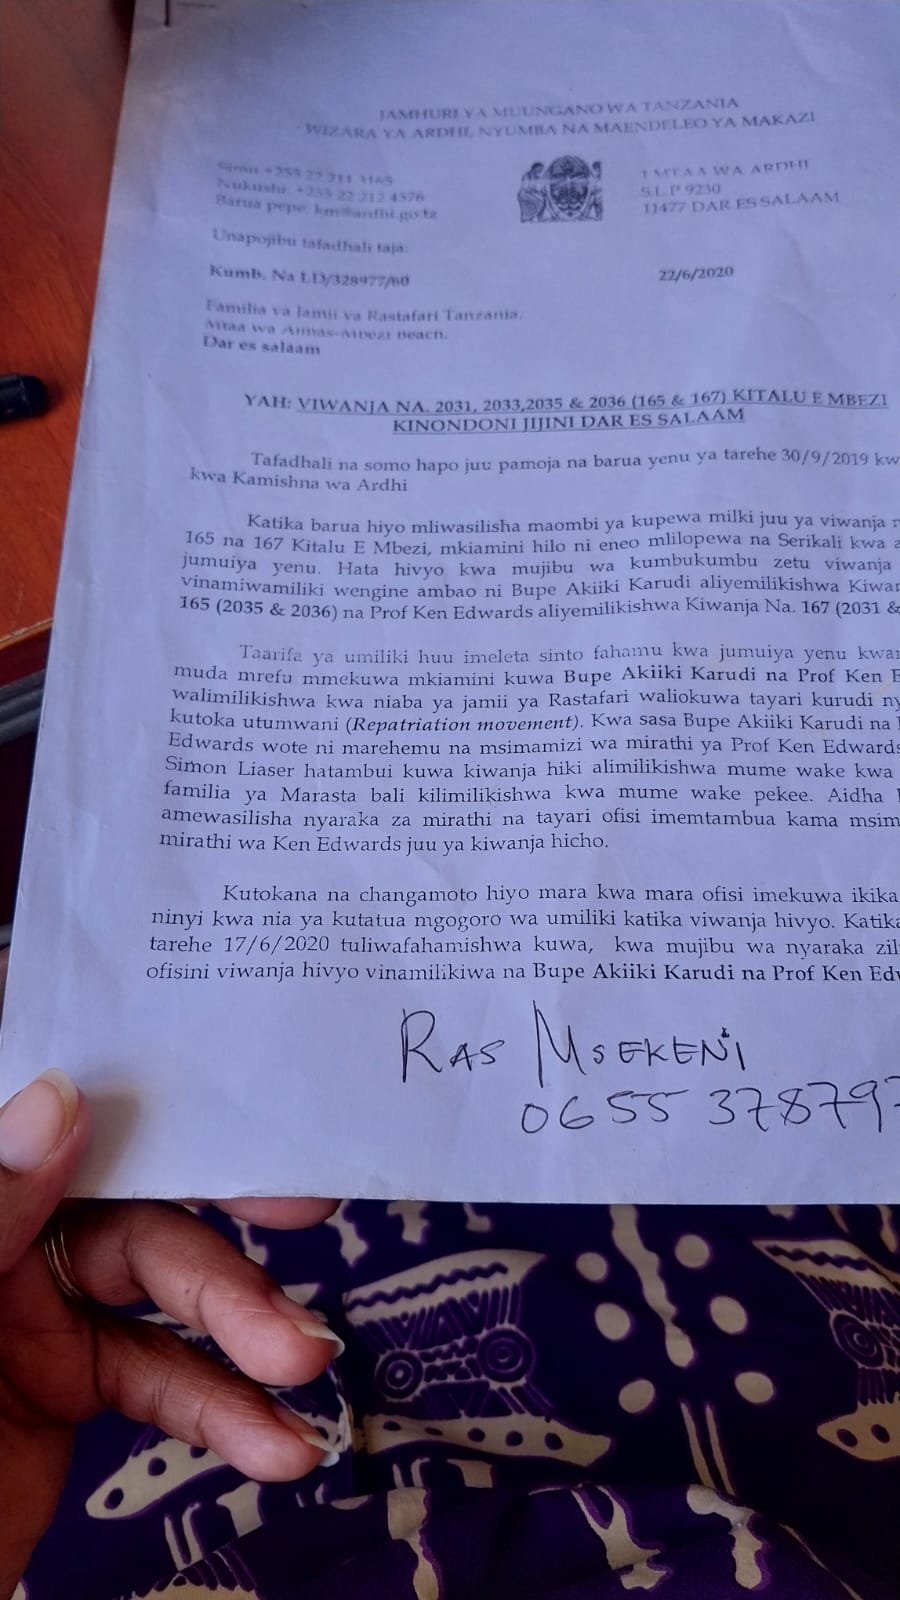 JAMHURI YA MUUNGANO WA TANZANIA
WIZARA YA ARDHI, NYUMBA NA MAENDELEO YA MAKAZI
Simu +255 22 211 3165
Nukushi: +255 22 212 4576
Barua pepe: km@ardhi.go.tz
1 MTAA WA ARDHI
S.L.P 9230
11477 DAR ES SALAAM
Unapojibu tafadhali taja:
Kumb. Na LD/328977/60
22/6/2020
Familia ya Jamii ya Rastafari Tanzania.
Mtaa wa Beach.
Dar es salaam
YAH: VIWANJA NA. 2031, 2033,2035 & 2036 (165 & 167) KITALU E MBEZI
KINONDONI JIJINI DAR ES SALAAM
Tafadhali na somo hapo juu pamoja na barua yenu ya tarehe 30/9/2019 kw
kwa Kamishna wa Ardhi
Katika barua hiyo mliwasilisha maombi ya kupewa milki juu ya viwanja
165 na 167 Kitalu E Mbezi, mkiamini hilo ni eneo mlilopewa na Serikali kwa a
jumuiya yenu. Hata hivyo kwa mujibu wa kumbukumbu zetu viwanja
vinamiwamiliki wengine ambao ni Bupe Akiiki Karudi aliyemilikishwa Kiwan
165 (2035 & 2036) na Prof Ken Edwards aliyemilikishwa Kiwanja Na. 167 (2031 &
Taarifa ya umiliki huu imeleta sinto fahamu kwa jumuiya yenu kwan
muda mrefu mmekuwa mkiamini kuwa Bupe Akiiki Karudi na Prof Ken E
walimilikishwa kwa niaba ya jamii ya Rastafari waliokuwa tayari kurudi ny
kutoka utumwani (Repatriation movement). Kwa sasa Bupe Akiiki Karudi na
Edwards wote ni marehemu na msimamizi wa mirathi ya Prof Ken Edwards
Simon Liaser hatambui kuwa kiwanja hiki alimilikishwa mume wake kwa
familia ya Marasta bali kilimilikishwa kwa mume wake pekee. Aidha
amewasilisha nyaraka za mirathi na tayari ofisi imemtambua kama msim
mirathi wa Ken Edwards juu ya kiwanja hicho.
Kutokana na changamoto hiyo mara kwa mara ofisi imekuwa ikika
ninyi kwa nia ya kutatua mgogoro wa umiliki katika viwanja hivyo. Katika
tarehe 17/6/2020 tuliwafahamishwa kuwa, kwa mujibu wa nyaraka zil
ofisini viwanja hivyo vinamilikiwa na Bupe Akiiki Karudi na Prof Ken Edw
RAS MSEKENI
0655 378797